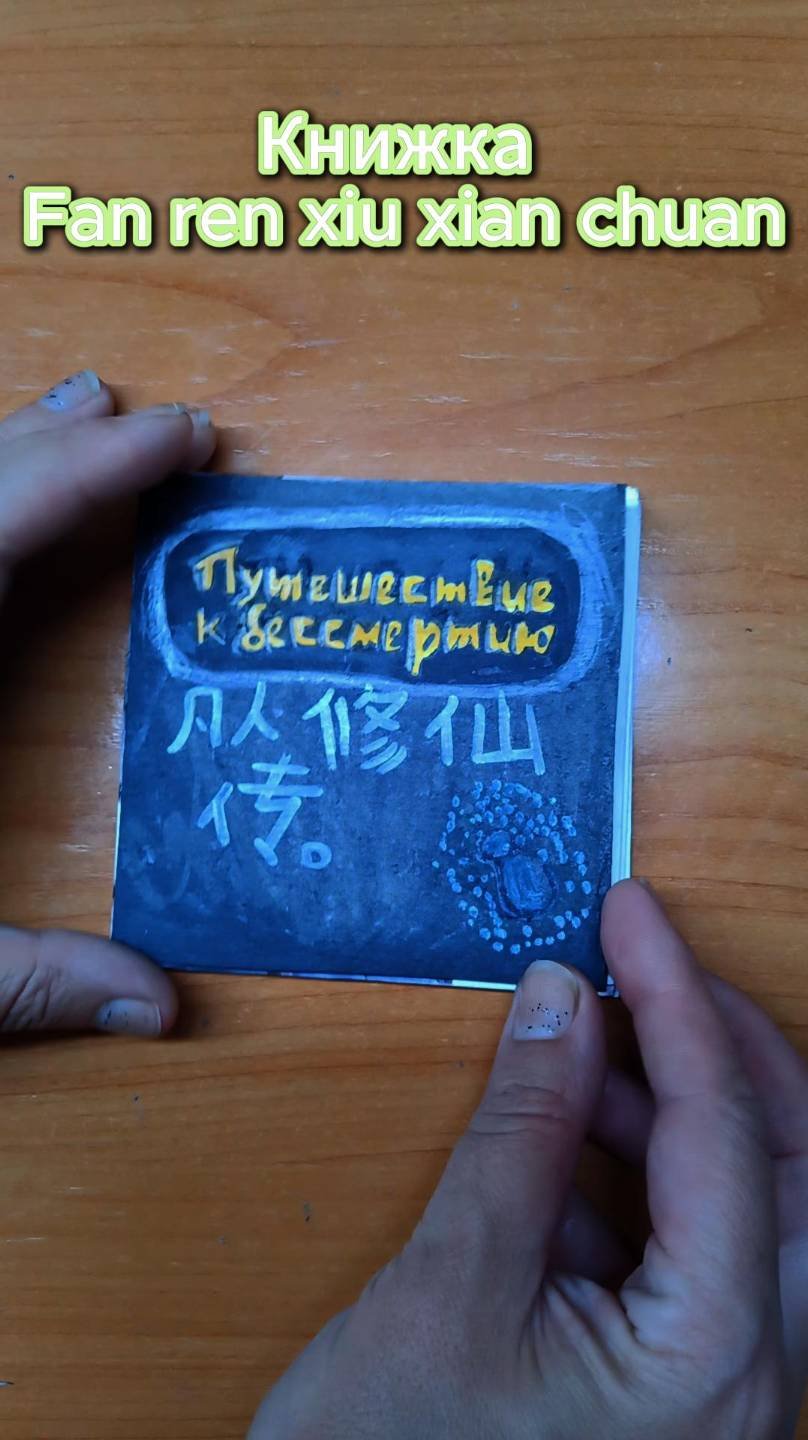 Книжка
Fan ren xiu xian chuan
Путешествие
к бессмертию
凡人修仙
传。